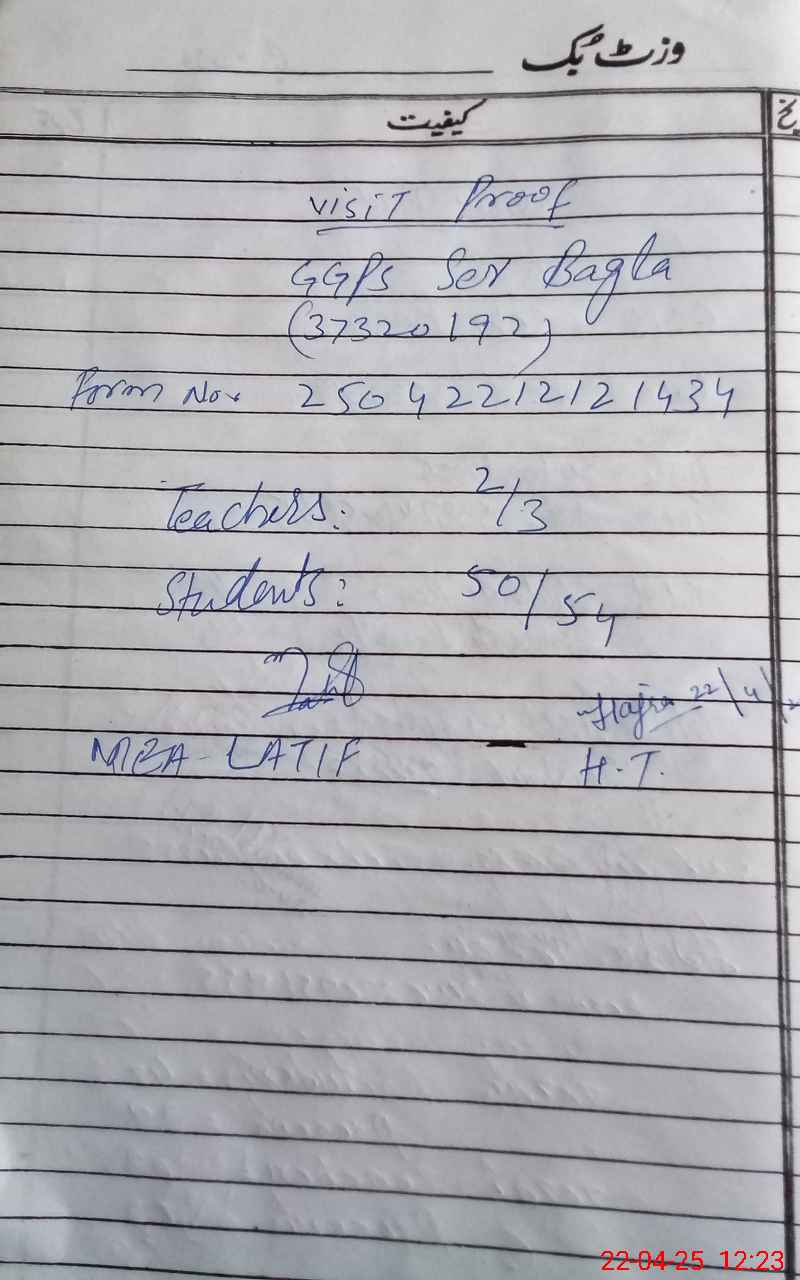 وزٹ بُک
کیفیت
VISIT Proof
GGPS Ser Bagla
(37320192)
Form No. 25042212121434
Teachers: 2/3
Students: 50/54
Hajra 22/4/
MEA - LATIF - H.T.
22-04-25 12:23